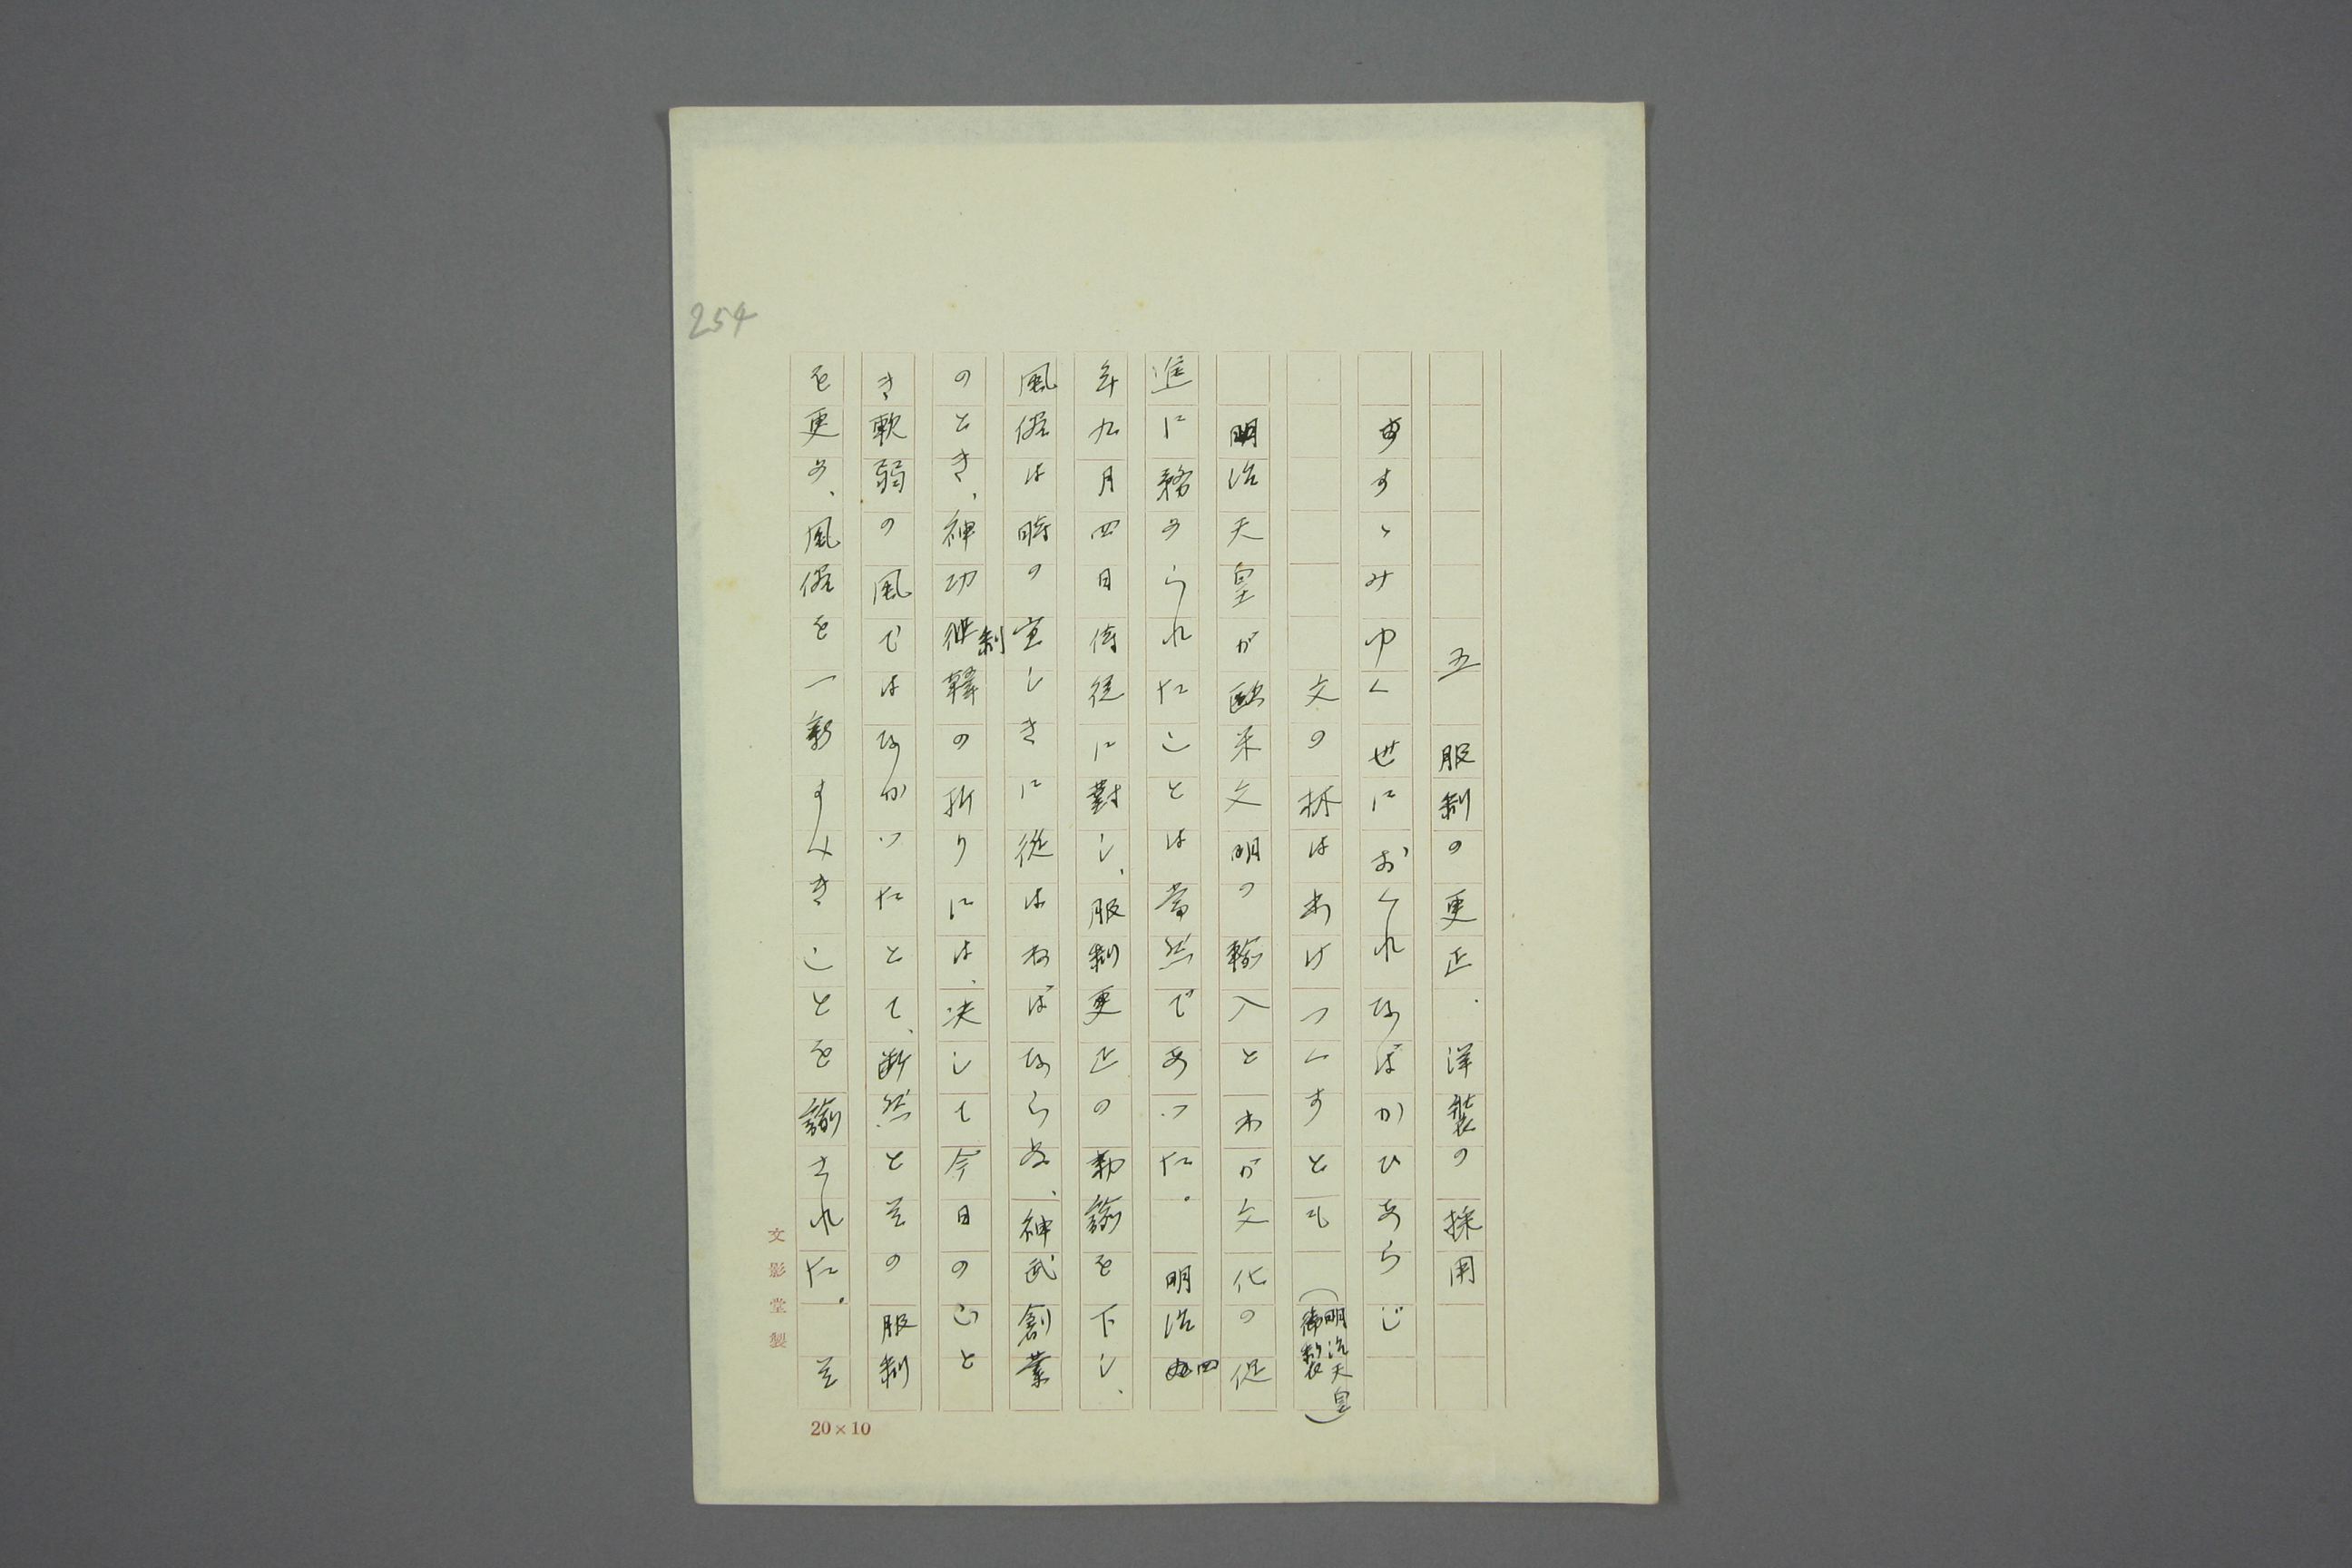 五 服制の更正.洋装の採用
すゝみゆく世におくれなばかひあらじ
文の林はわけつくすとも（明治天皇御製）
明治天皇が歐米文明の輸入とわが文化の促
進に務められたことは當然であつた。 明治四
年九月四日侍從に對し、服制更正の勅諭を下し、
風俗は時の宜しきに從はねばならぬ、神武創業
のとき、神功制韓の折りには、决して今日のごと
き軟弱の風ではなかつたとて、断然とその服制
を更め、風俗を一新すべきことを諭された。 そ
254
文影堂製
20×10